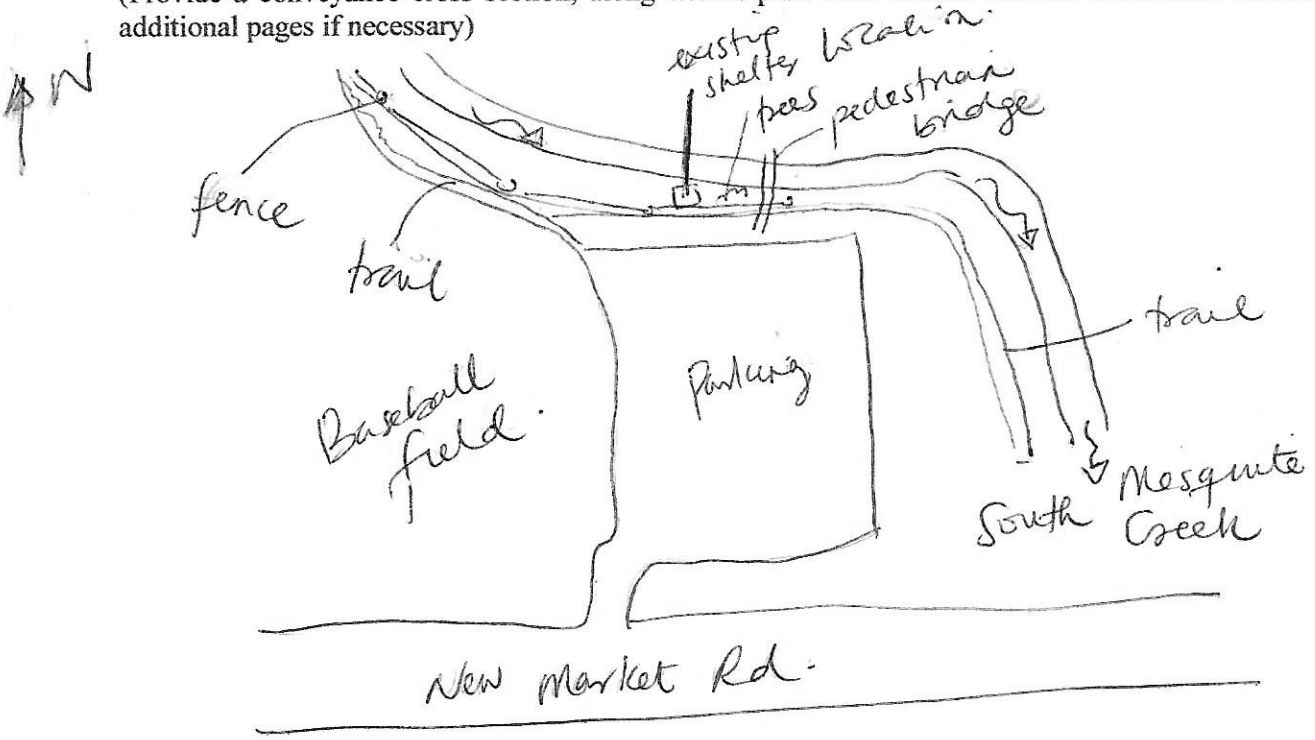 additional pages if necessary)
N
existing
shelter location.
trees
pedestrian
bridge
fence
trail
trail
Baseball
field.
Parking
South Mesquite
Creek
New Market Rd.